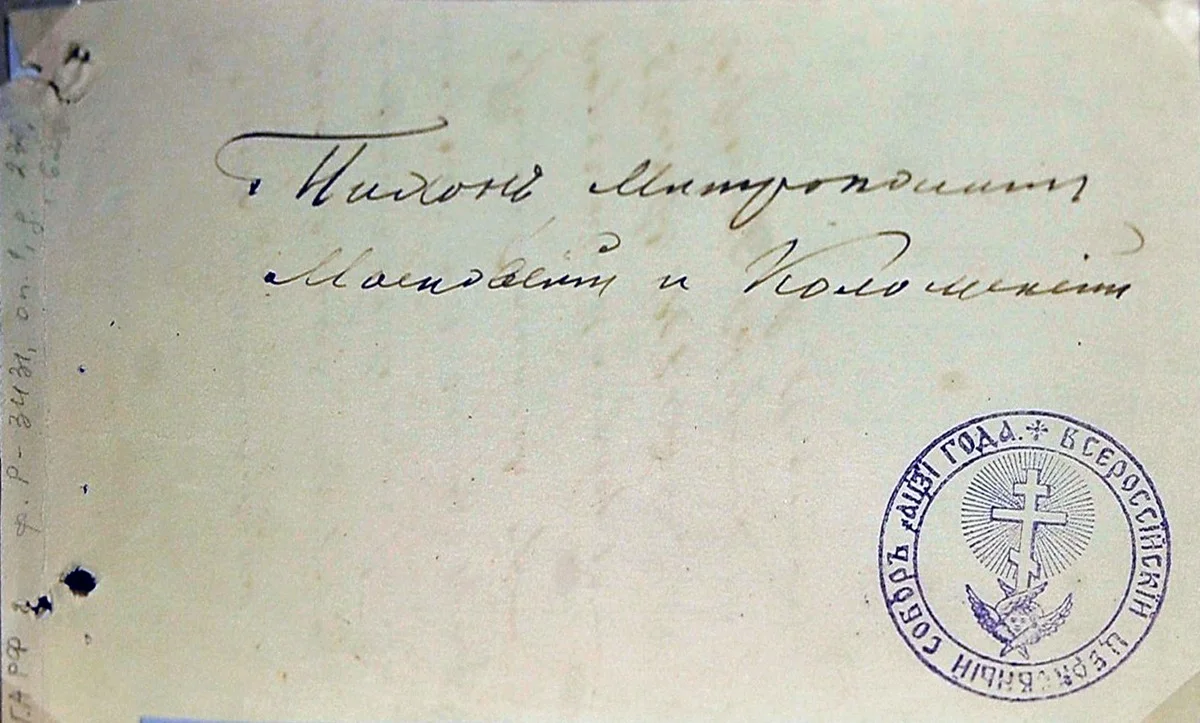 Тихонъ Митрополитъ
Московскій и Коломенскій
ВСЕРОССІЙСКІЙ ЦЕРКОВНЫЙ СОБОРЪ ҂АЦЗІ ГОДА.
ГАРФ
ф. Р-3431, оп. 1, д. 27,